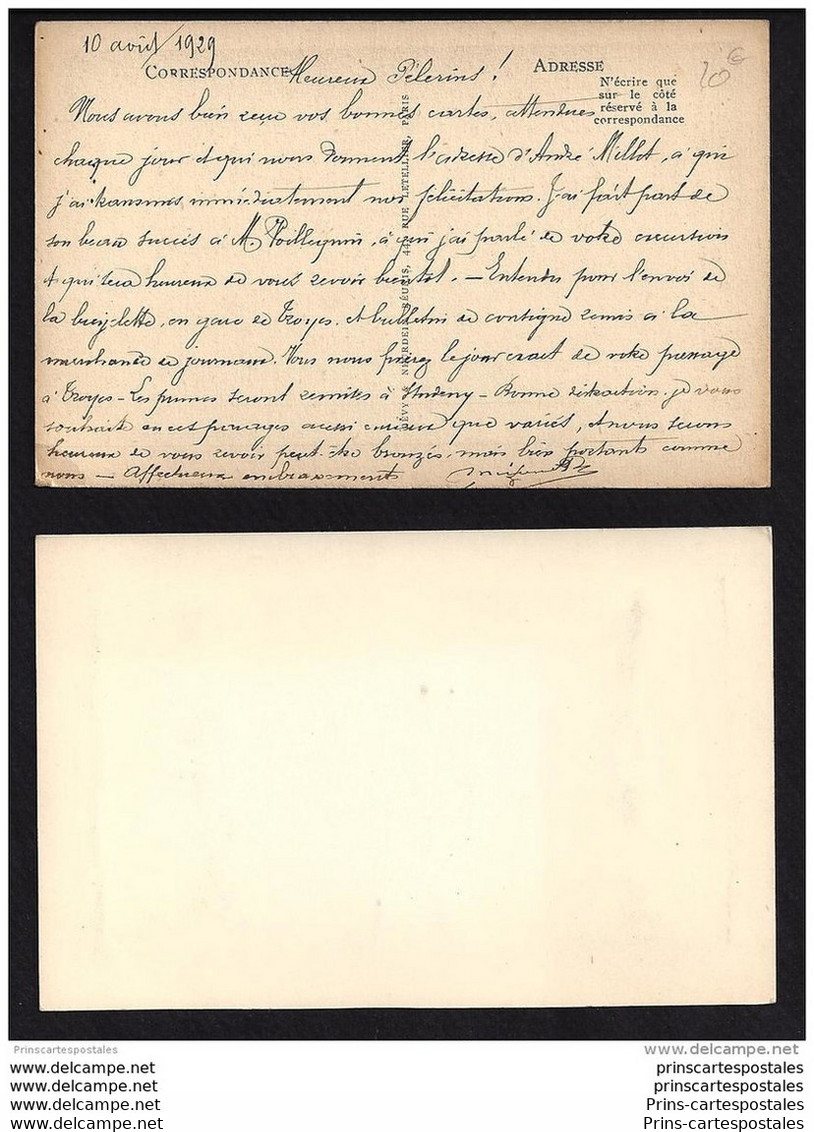 10 août / 1929
CORRESPONDANCE
Heureux Pélerins !
ADRESSE
20 €
N'écrire que
sur le côté
réservé à la
correspondance
Nous avons bien reçu vos bonnes cartes, attendues
chaque jour et qui nous donnent l'adresse d'André Millot, à qui
j'ai transmis immédiatement nos félicitations. J'ai fait part de
son beau succès à M. à qui j'ai parlé de votre excursion
et qui sera heureux de vous revoir bientôt. — Entendu pour l'envoi de
la bicyclette, en gare de Troyes, et bulletin de consigne remis à la
marchande de journaux. Vous nous fixerez le jour exact de votre passage
à Troyes — Les prunes seront remises à — Bonne distraction. je vous
souhaite en ces parages aussi curieux que variés, et nous serons
heureux de vous revoir peut-être bronzés, mais bien portants comme
nous — Affectueux embrassements
LÉVY & NEURDEIN RÉUNIS, 44, RUE LETELLIER, PARIS
Prinscartespostales
www.delcampe.net
www.delcampe.net
prinscartespostales
www.delcampe.net
prinscartespostales
www.delcampe.net
Prins-cartespostales
www.delcampe.net
Prins-cartespostales